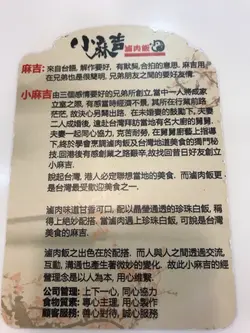 小麻吉滷肉飯
麻吉：來自台語, 解作要好, 有默契, 合拍的意思, 麻吉用
在兄弟也是很簡明, 兄弟朋友之間的要好友情.
小麻吉：由三個感情要好的兄弟所創立, 當中一人將成家
立室之際, 有感當時經濟不景, 其所在行業前路
茫茫, 故決心另闢出路. 在因緣際會下, 夫妻
二人成婚後, 遠赴台灣拜訪當地有名大廚的舅舅.
夫妻一起同心協力, 克苦耐勞, 在舅舅廚藝上指導
下, 終於學會烹調滷肉飯及台灣地道美食的獨門秘
技. 回港後有感創業之路艱辛, 故找回昔日好友創立
小麻吉.
說起台灣, 港人必定聯想當地的美食. 而滷肉飯更是
台灣最受歡迎美食之一.
滷肉味道甘香可口, 配以晶瑩通透的珍珠白飯, 稱
得上絕妙配搭. 當滷肉遇上珍珠白飯, 可說是台灣
美食的麻吉.
滷肉飯之出色在於配搭, 而人與人之間透過交流,
互動, 溝通也產生著微妙的變化. 故此小麻吉的經
營理念是以人為本, 用心維繫.
公司管理: 上下一心, 同心協力
食物質素: 專心主理, 用心製作
顧客服務: 善心對待, 誠心服務